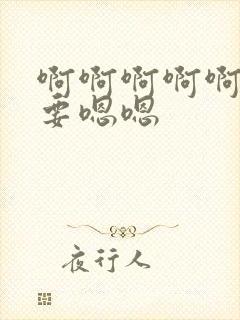 啊啊啊啊啊
要嗯嗯
夜行人